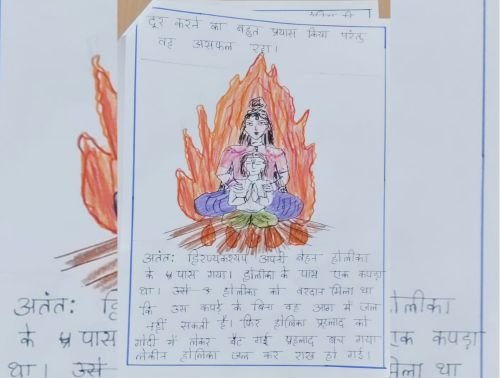 दूर करने का बहुत प्रयास किया परंतु
वह असफल रहा।
अतंत: हिरण्यकश्यप अपनी बेहन होलीका
के पास गया। होलीका के पास एक कपड़ा
था। उसे होलीका को वरदान मिला था
कि उस कपड़े के बिना वह आग में जल
नहीं सकती हैं। फिर होलिका प्रहलाद को
गोदी में लेकर बैठ गई प्रहलाद बच गया
लेकीन होलिका जल कर राख हो गई।